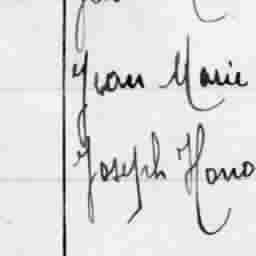 Yvan Marie
Joseph Hono